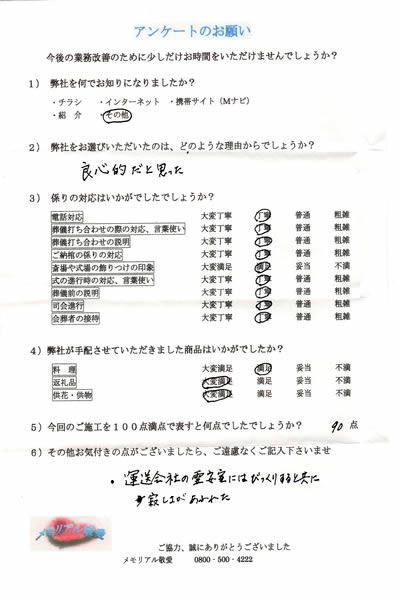 アンケートのお願い
今後の業務改善のために少しだけお時間をいただけませんでしょうか?
1) 弊社を何でお知りになりましたか?
・チラシ ・インターネット ・携帯サイト(Mナビ)
・紹 介 ・その他
2) 弊社をお選びいただいたのは、どのような理由からでしょうか?
良心的だと思った
3) 係りの対応はいかがでしたでしょうか?
電話対応 大変丁寧 丁寧 普通 粗雑
葬儀打ち合わせの際の対応、言葉使い 大変丁寧 丁寧 普通 粗雑
葬儀打ち合わせの説明 大変丁寧 丁寧 普通 粗雑
ご納棺の係りの対応 大変丁寧 丁寧 普通 粗雑
斎場や式場の飾りつけの印象 大変満足 満足 妥当 不満
式の進行時の対応、言葉使い 大変丁寧 丁寧 普通 粗雑
葬儀前の説明 大変丁寧 丁寧 普通 粗雑
司会進行 大変丁寧 丁寧 普通 粗雑
会葬者の接待 大変丁寧 丁寧 普通 粗雑
4) 弊社が手配させていただきました商品はいかがでしたか?
料 理 大変満足 満足 妥当 不満
返礼品 大変満足 満足 妥当 不満
供花・供物 大変満足 満足 妥当 不満
5) 今回のご施工を100点満点で表すと何点でしたでしょうか? 90 点
6) その他お気付きの点がございましたら、ご遠慮なくご記入下さいませ
・運送会社の霊安室にはびっくりすると共に
寂しさがあふれた
メモリアル敬愛
ご協力、誠にありがとうございました
メモリアル敬愛 0800-500-4222